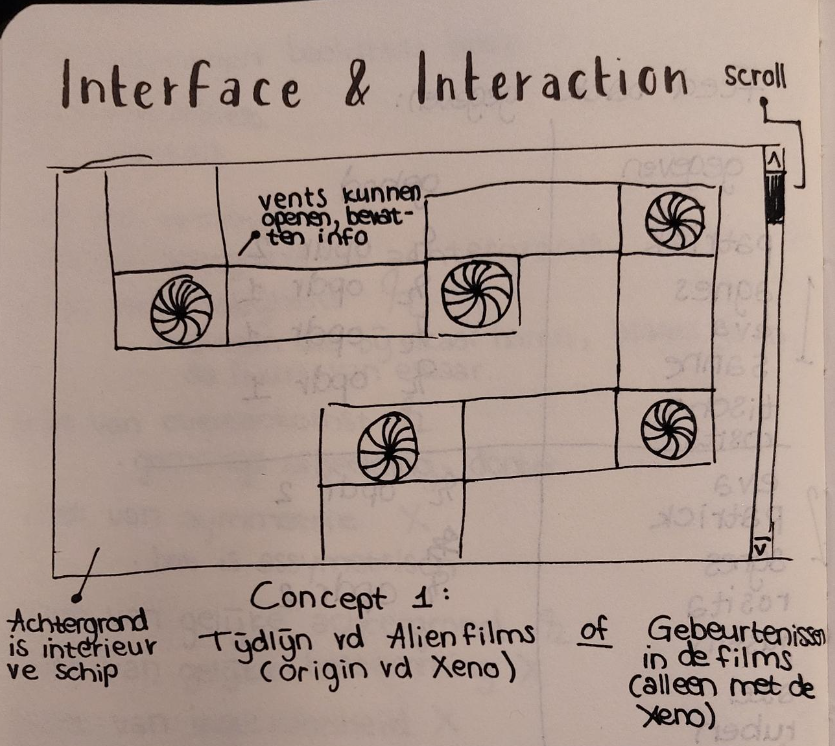 Interface & Interaction
scroll
vents kunnen
openen, bevat-
ten info
Achtergrond
is interieur
ve schip
Concept 1:
Tijdlijn vd Alien films
(origin vd Xeno)
of
Gebeurtenissen
in de films
(alleen met de
xeno)